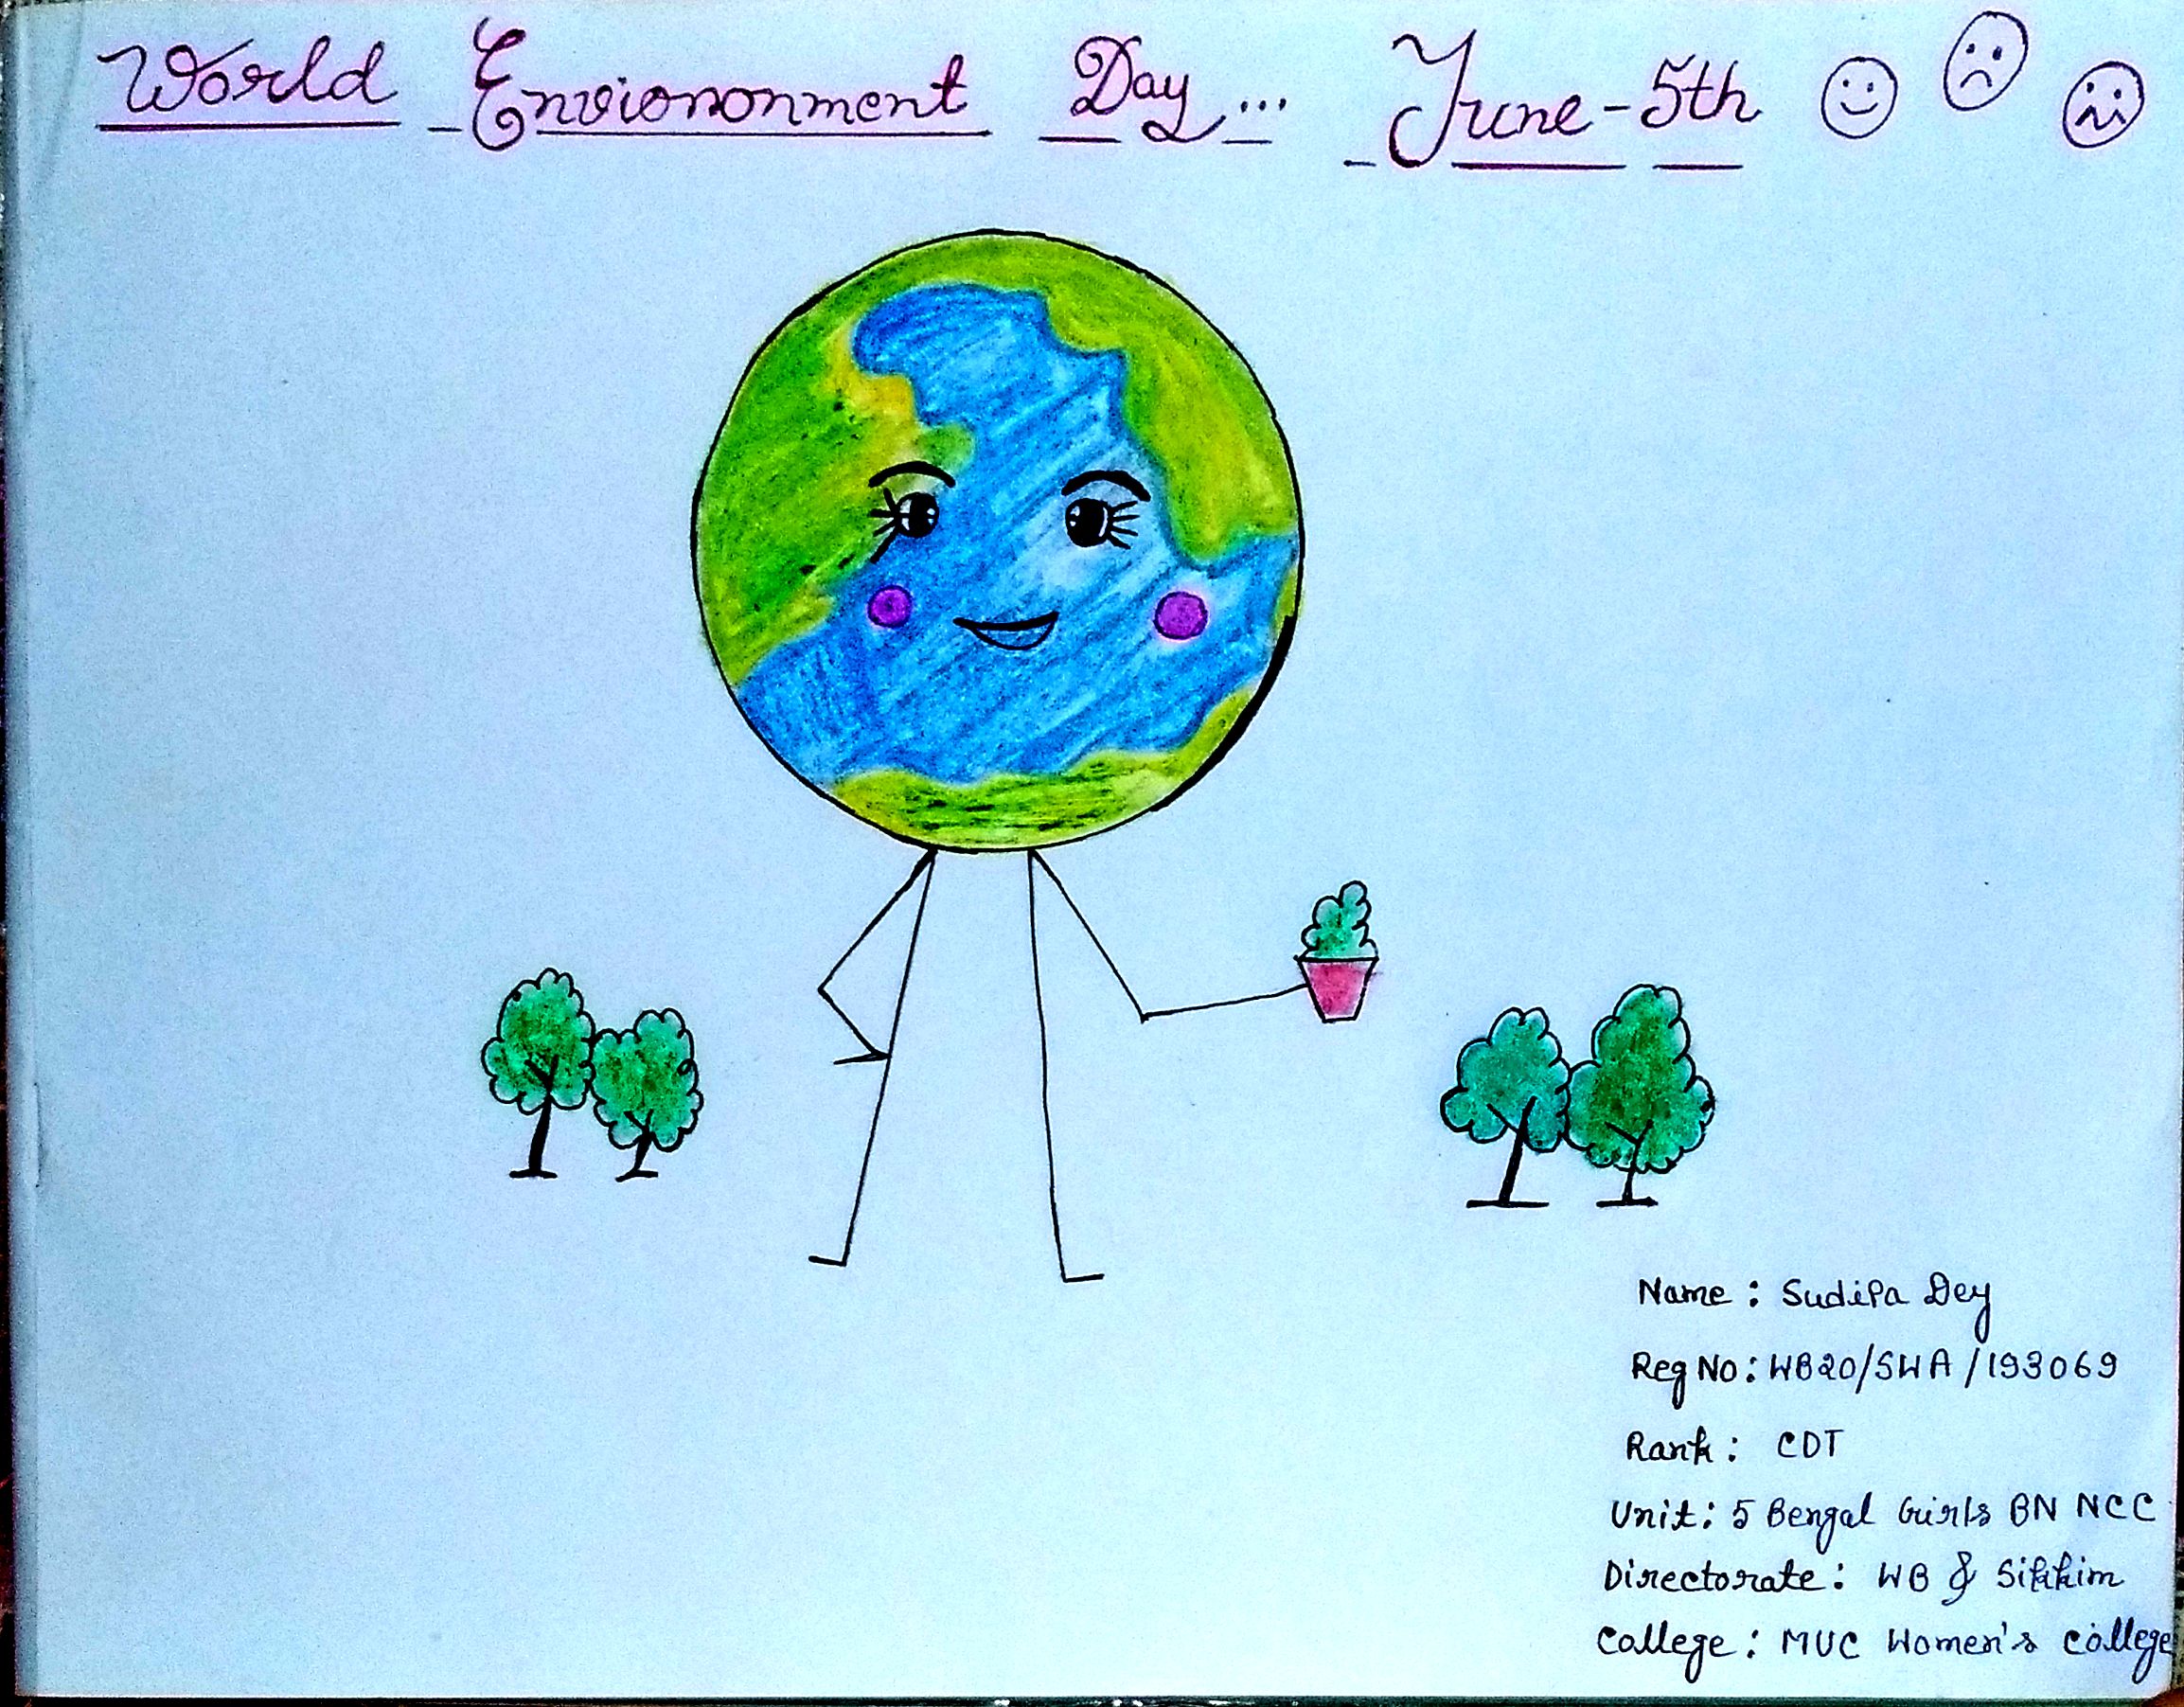 World Enviononment Day... June-5th
Name : Sudipa Dey
Reg No: WB20/SWA/193069
Rank : CDT
Unit: 5 Bengal Girls BN NCC
Directorate: WB & Sikkim
College : MUC Women's College